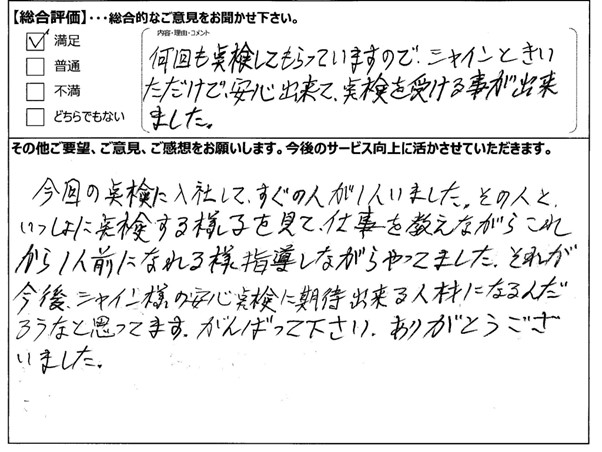 【総合評価】・・・総合的なご意見をお聞かせ下さい。
満足
普通
不満
どちらでもない
内容・理由・コメント
何回も点検してもらっていますので、シャインときい
ただけで、安心出来て、点検を受ける事が出来
ました。
その他ご要望、ご意見、ご感想をお願いします。今後のサービス向上に活かさせていただきます。
今回の点検に入社して、すぐの人が1人いました。その人と、
いっしょに点検する様子を見て、仕事を教えながらこれ
から1人前になれる様、指導しながらやってました。それが
今後、シャイン様の安心点検に期待出来る人材になるんだ
ろうなと思ってます。がんばって下さい。ありがとうござ
いました。